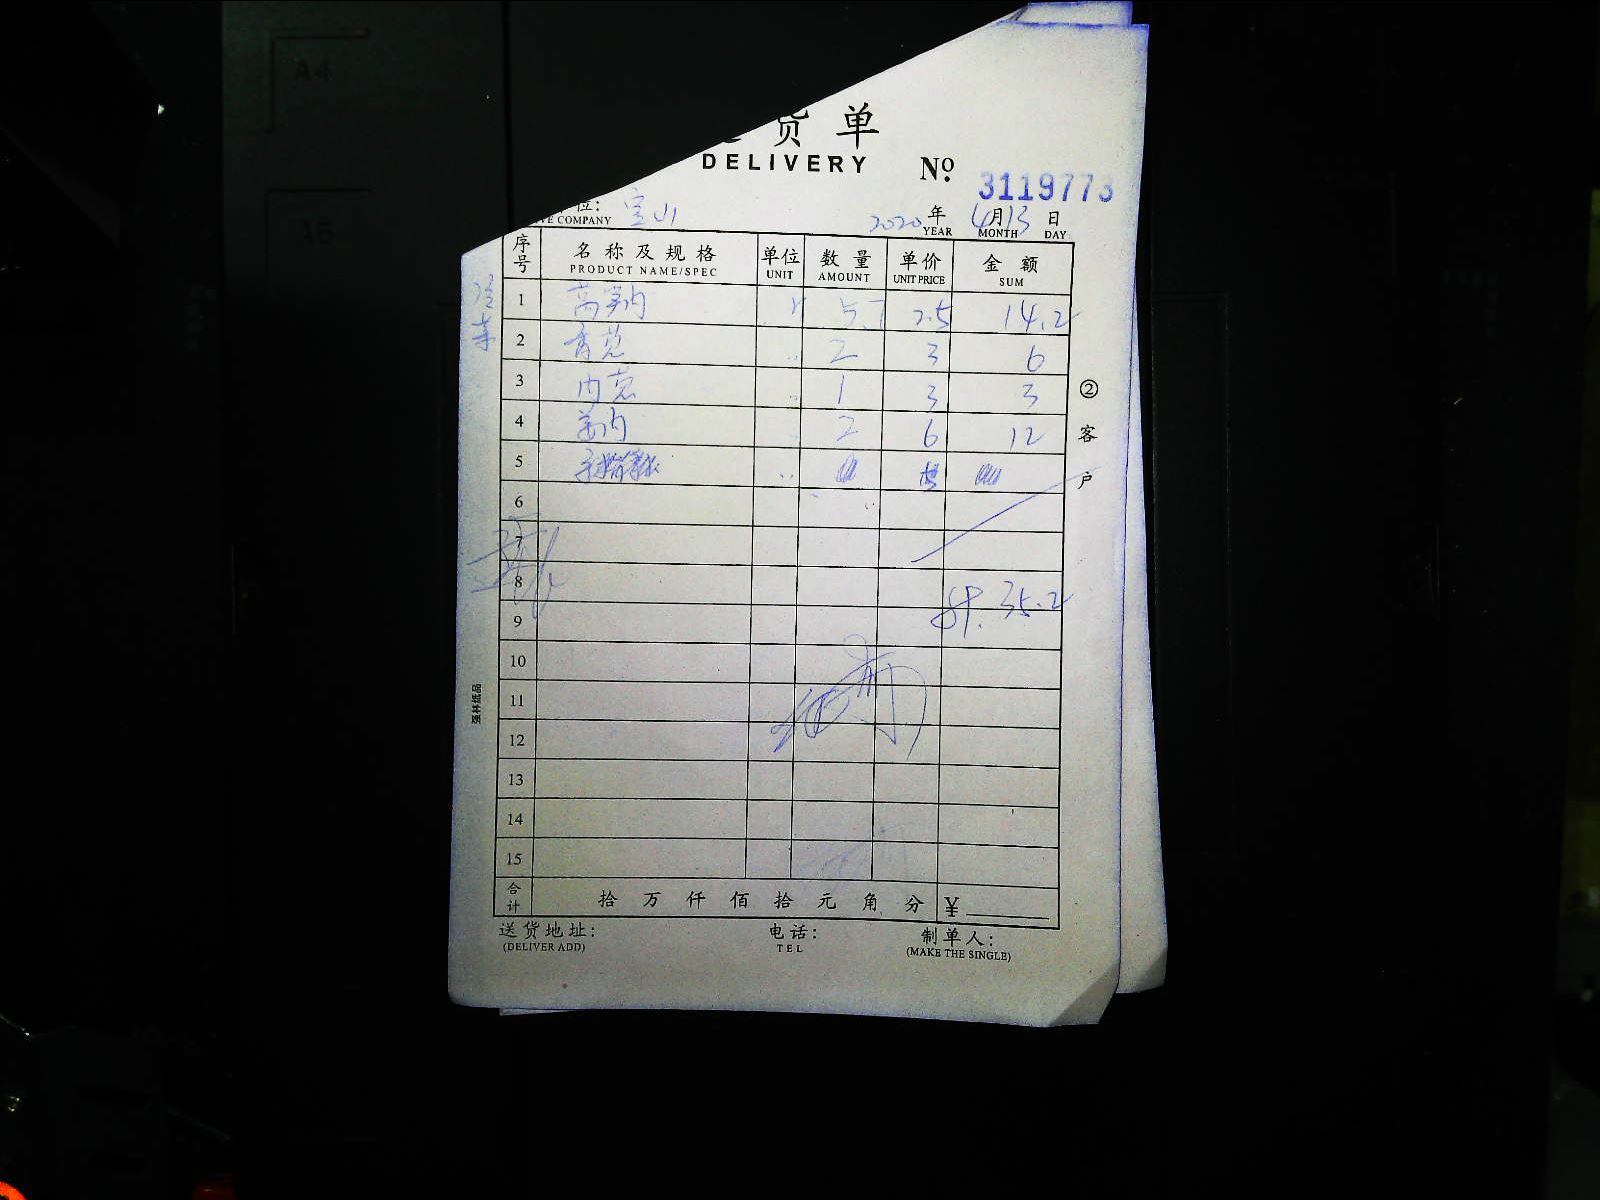 货单
DELIVERY No 3119773
位: 宝山 2020年 4月13日
VE COMPANY YEAR MONTH DAY
序号 名称及规格 单位 数量 单价 金额
PRODUCT NAME/SPEC UNIT AMOUNT UNIT PRICE SUM
1 莴笋肉 5.7 2.5 14.2
2 青 2 3 6
3 内 1 3 3
4 2 6 12
5
6
7
8
计. 35.2
9
10
11
12
13
14
15
合计 拾万仟佰拾元角分 ¥
送货地址: 电话: 制单人:
(DELIVER ADD) TEL (MAKE THE SINGLE)
②客户
强林纸品
A4
A5